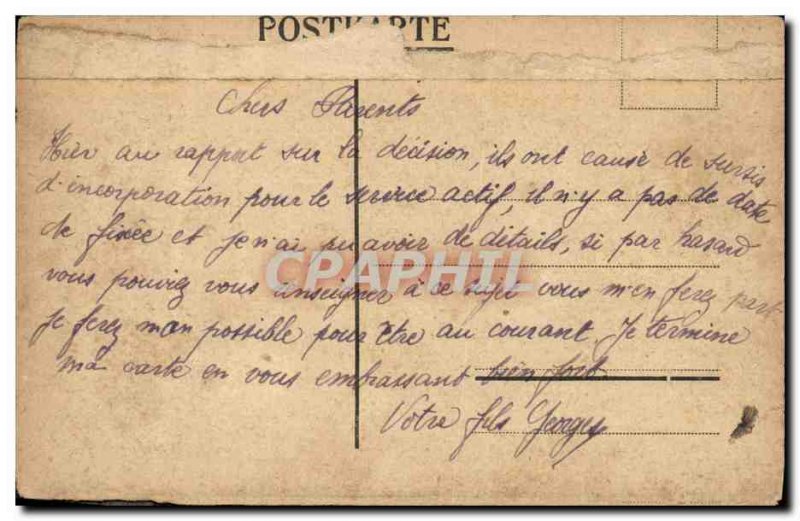 POSTKARTE
Chers Parents
Hier au rapport sur la décision, ils ont causé de sursis
d'incorporation pour le service actif, il n'y a pas de date
de fixée et je n'ai pu avoir de détails, si par hasard
vous pouviez vous enseigner à ce sujet vous m'en ferez part
je ferez mon possible pour être au courant. Je termine
ma carte en vous embrassant bien fort.
Votre fils Georges
CPAPHIL